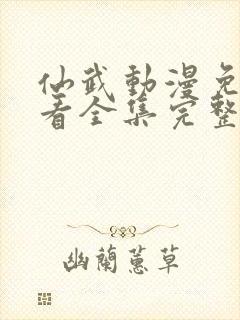 仙武動漫免
看全集完整
幽蘭蕙草